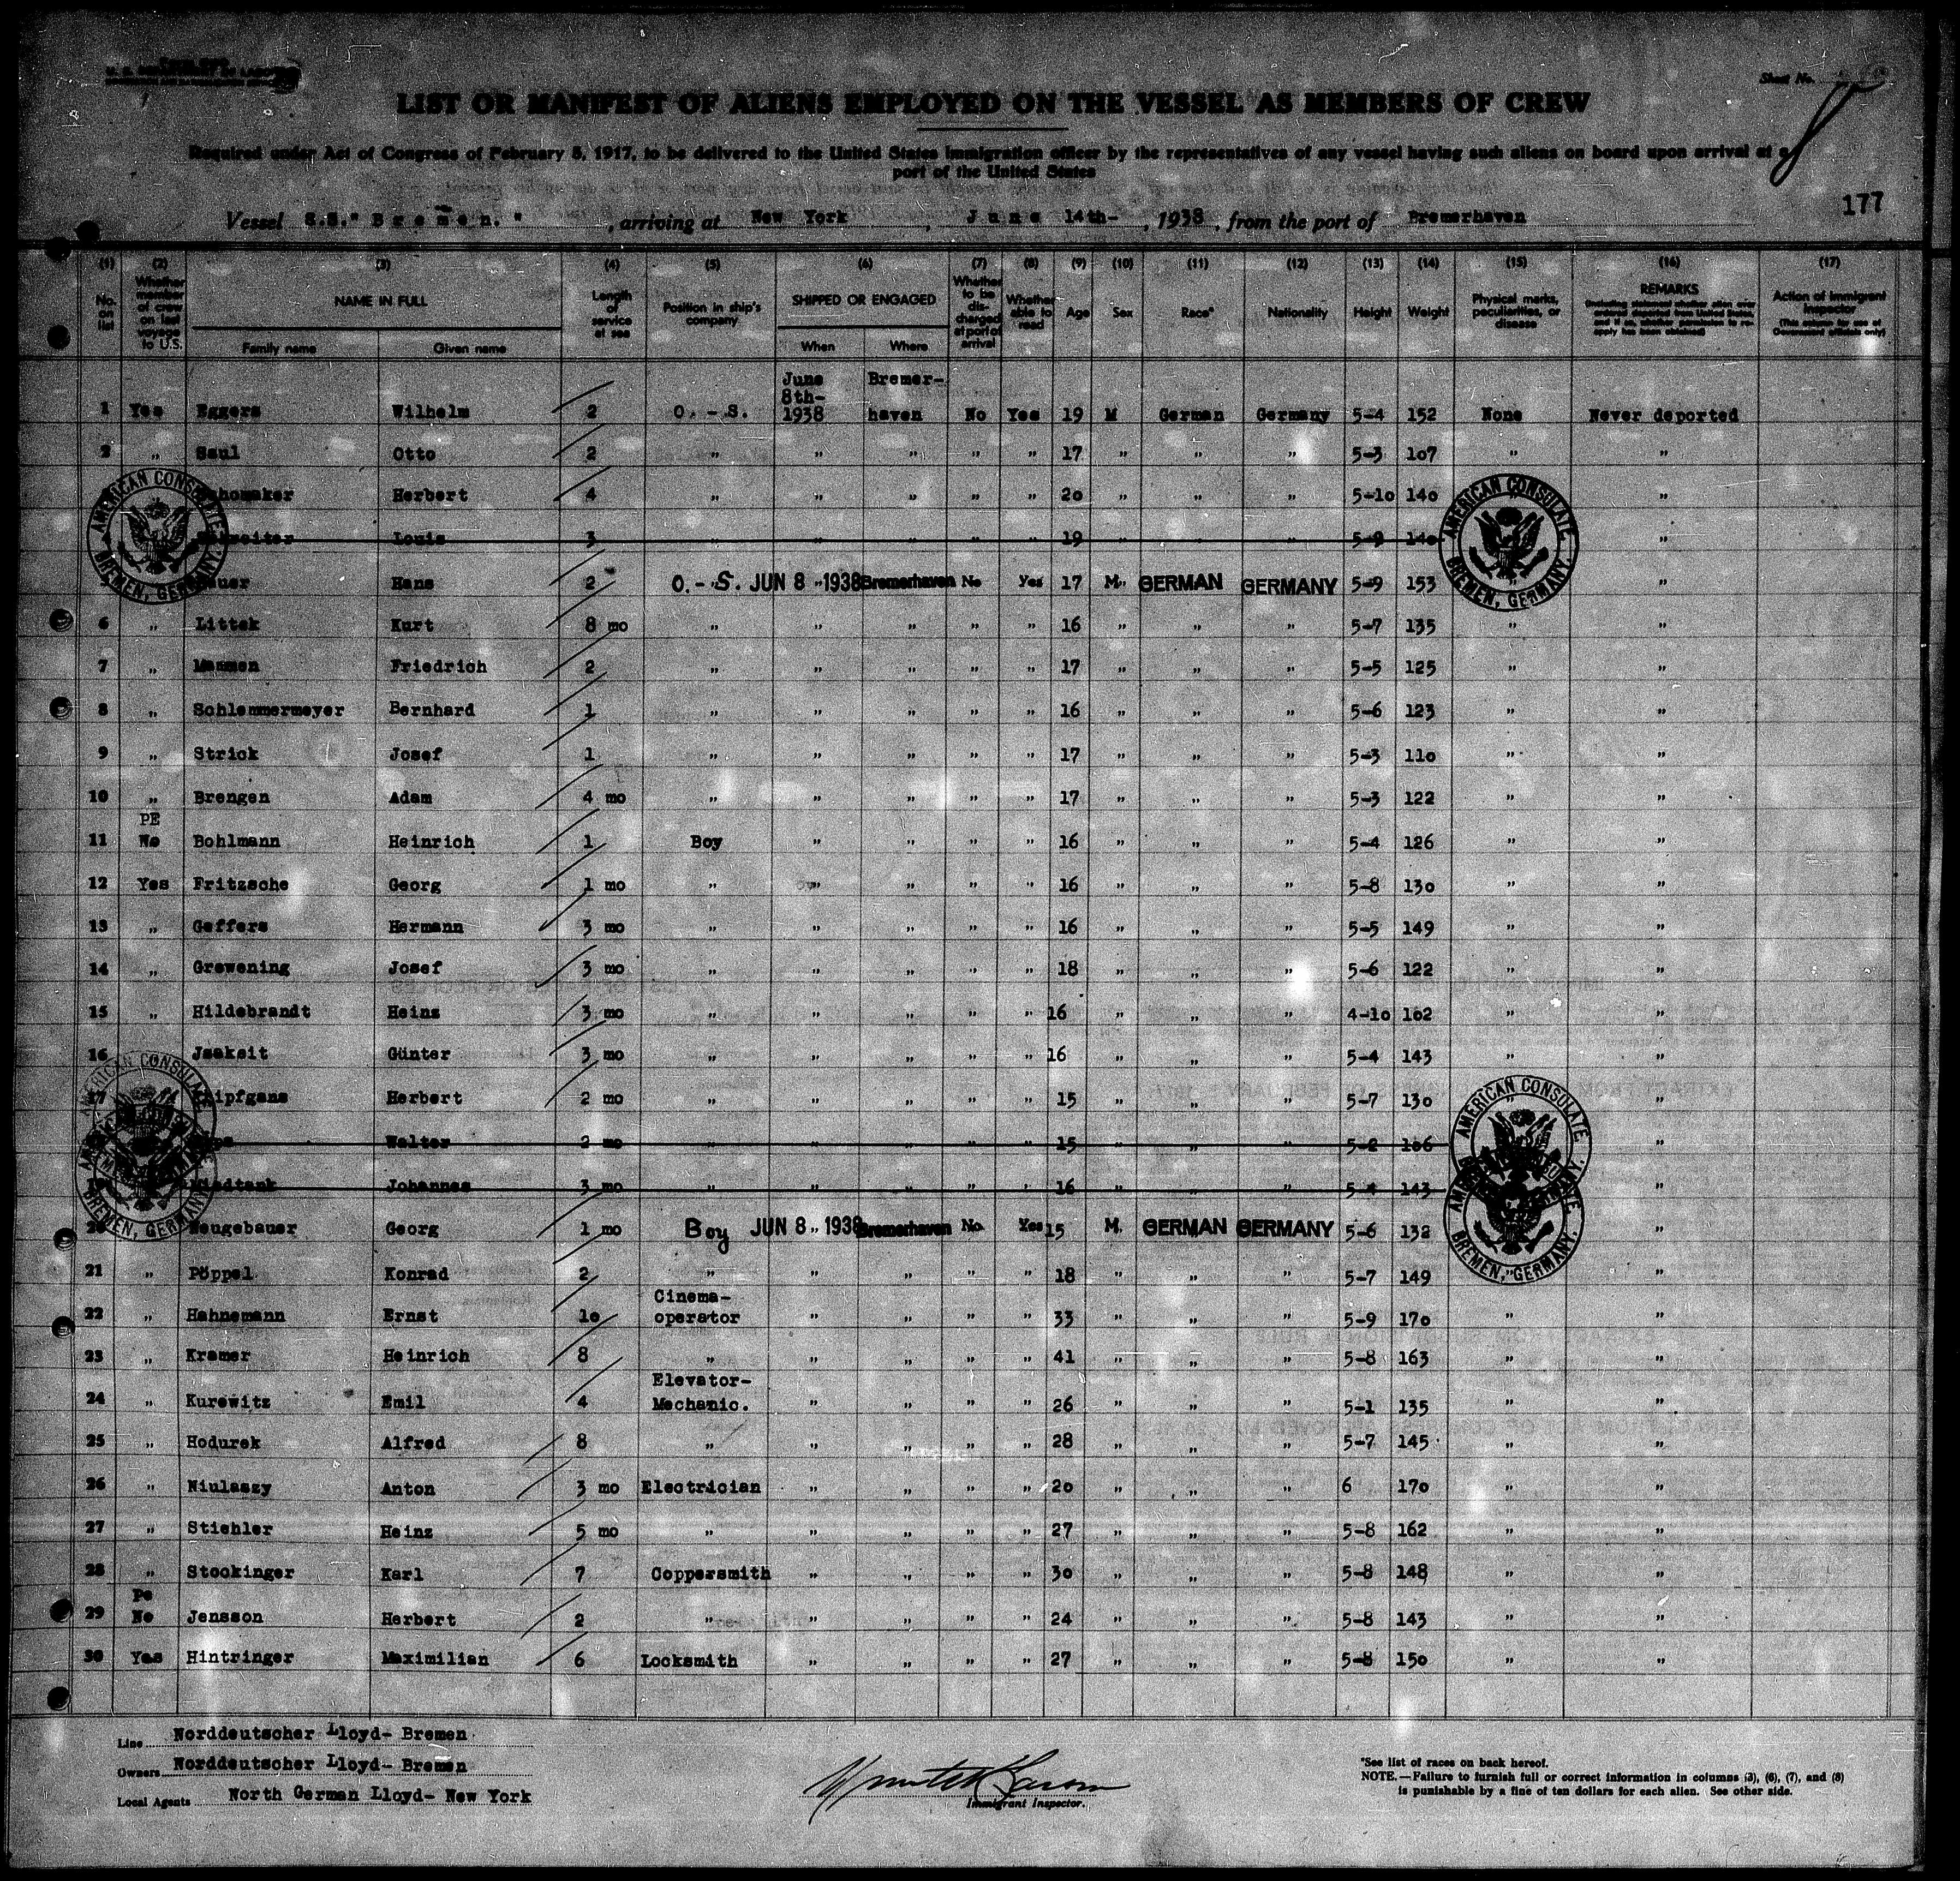 Sheet No.
LIST OR MANIFEST OF ALIENS EMPLOYED ON THE VESSEL AS MEMBERS OF CREW
Required under Act of Congress of February 5, 1917, to be delivered to the United States immigration officer by the representatives of any vessel having such aliens on board upon arrival at a
port of the United States
177
Vessel S.S." B r e m e n. " , arriving at New York , J u n e 14th- , 1938 , from the port of Bremerhaven
(1) (2) (3) (4) (5) (6) (7) (8) (9) (10) (11) (12) (13) (14) (15) (16) (17)
No. on list Whether member of crew on last voyage to U.S. NAME IN FULL Family name Given name Length of service at sea Position in ship's company SHIPPED OR ENGAGED When Where Whether to be discharged at port of arrival Whether able to read Age Sex Race* Nationality Height Weight Physical marks, peculiarities, or disease REMARKS (Including statement whether alien ever ordered deported from United States, and if so, whether permission to reapply has been obtained) Action of immigrant inspector (This column for use of Government officials only)
1 Yes Eggers Wilhelm 2 O. - S. June 8th- 1938 Bremer- haven No Yes 19 M German Germany 5-4 152 None Never deported
2 " Saul Otto 2 " " " " " 17 " " " 5-3 107 " "
AMERICAN CONSULATE BREMEN, GERMANY.
AMERICAN CONSULATE BREMEN, GERMANY.
Herbert 4 " " " " " 20 " " " 5-10 140 "
Louis 3 19 5-9 140 "
Hans 2 O. - S. JUN 8 - 1938 Bremerhaven No Yes 17 M. GERMAN GERMANY 5-9 153 "
6 " Littek Kurt 8 mo " " " " " 16 " " " 5-7 135 " "
7 " Mammen Friedrich 2 " " " " " 17 " " " 5-5 125 " "
8 " Schlemmermeyer Bernhard 1 " " " " " 16 " " " 5-6 123 " "
9 " Strick Josef 1 " " " " " 17 " " " 5-3 110 " "
10 " Brengen Adam 4 mo " " " " " 17 " " " 5-3 122 " "
PE
11 No Bohlmann Heinrich 1 Boy " " " " 16 " " " 5-4 126 " "
12 Yes Fritzsche Georg 1 mo " " " " " 16 " " " 5-8 130 " "
13 " Geffers Hermann 3 mo " " " " " 16 " " " 5-5 149 " "
14 " Grewening Josef 3 mo " " " " " 18 " " " 5-6 122 " "
15 " Hildebrandt Heinz 3 mo " " " " " 16 " " " 4-10 102 " "
16 Jsakeit Günter 3 mo " " " " " 16 " " " 5-4 143 " "
AMERICAN CONSULATE BREMEN, GERMANY.
AMERICAN CONSULATE BREMEN, GERMANY.
17 Herbert 2 mo " " " " " 15 " " " 5-7 130 " "
Walter 2 mo " " " " " 15 " " " "
19 Johannes 3 mo " " " " " 16 " " " 5-4 143 "
20 Neugebauer Georg 1 mo Boy JUN 8 - 1938 Bremerhaven No. Yes 15 M. GERMAN GERMANY 5-6 132 "
21 " Pöppel Konrad 2 " " " " " 18 " " " 5-7 149 " "
22 " Hahnemann Ernst 10 Cinema- operator " " " " 33 " " " 5-9 170 " "
23 " Kramer Heinrich 8 " " " " " 41 " " " 5-8 163 " "
24 " Kurewitz Emil 4 Elevator- Mechanic. " " " " 26 " " " 5-1 135 " "
25 " Hodurek Alfred 8 " " " " " 28 " " " 5-7 145 " "
26 " Niulaszy Anton 3 mo Electrician " " " " 20 " " " 6 170 " "
27 " Stiehler Heinz 5 mo " " " " " 27 " " " 5-8 162 " "
28 " Stockinger Karl 7 Coppersmith " " " " 30 " " " 5-8 148 " "
Pe
29 No Jensson Herbert 2 " " " " " 24 " " " 5-8 143 " "
30 Yes Hintringer Maximilian 6 Locksmith " " " " 27 " " " 5-8 150 " "
Line Norddeutscher Lloyd- Bremen
Owners Norddeutscher Lloyd- Bremen
Local Agents North German Lloyd- New York
Immigrant Inspector.
*See list of races on back hereof.
NOTE.—Failure to furnish full or correct information in columns (3), (6), (7), and (8)
is punishable by a fine of ten dollars for each alien. See other side.